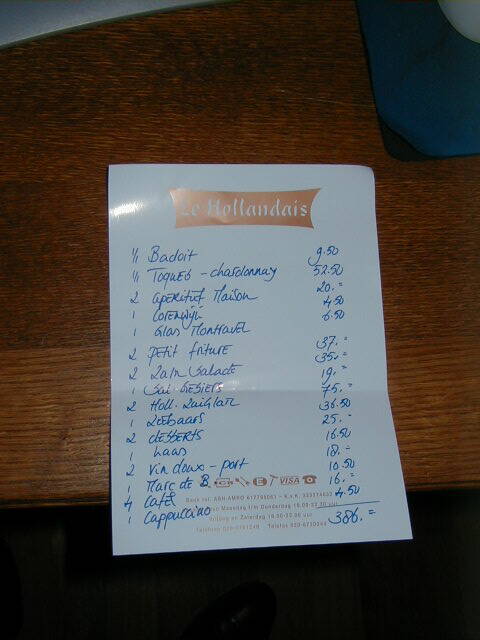 Le Hollandais
1/1 Badoit 9.50
1/1 Toques - chardonnay 52.50
2 aperitief Maison 20.=
1 Corenwijn 4.50
1 Glas Montravel 6.50
2 petit friture 37.=
2 Salade 35.=
1 Sal. Gesiers 19.=
2 Holl. Zuiglam 75.=
1 Zeebaars 36.50
2 desserts 25.=
1 kaas 16.50
2 Vin doux - port 18.=
1 Marc de B. 10.50
VISA
4 Café 16.=
1 Cappuccino 4.50
Bank rel. ABN-AMRO
Maandag t/m Donderdag
Vrijdag en Zaterdag
Telefoon Telefax
386.=